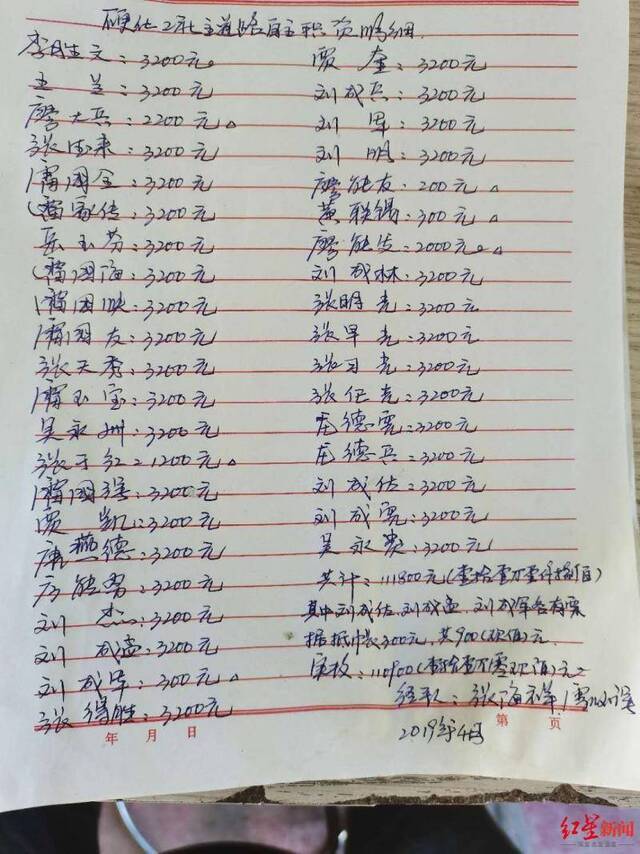 硬化2社主道路自主捐资明细
李月生文：3200元
王 兰：3200元
廖大兵：2200元△
张安来：3200元
廖国全：3200元
廖家传：3200元
吴玉芬：3200元
廖国海：3200元
廖国映：3200元
廖国友：3200元
张天秀：3200元
廖玉宝：3200元
吴永洲：3200元
张于红：1200元△
廖国强：3200元
贾 凯：3200元
康燕德：3200元
方能富：3200元
刘 杰：3200元
刘成孟：3200元
刘成军：300元△
张得胜：3200元
贾 奎：3200元
刘成兵：3200元
刘 军：3200元
刘 明：3200元
廖能友：200元△
黄联锡：300元△
廖能发：2000元△
刘成林：3200元
张明光：3200元
张早光：3200元
张习光：3200元
张任光：3200元
庞德宽：3200元
庞德兵：3200元
刘成估：3200元
刘成宽：3200元
吴永贵：3200元
共计：111800元
其中刘成估、刘成孟、刘成军各有票
据抵帐300元，共900元
实收：110900
经手人：张海祥
2019年4月
年 月 日
第 页
红星新闻